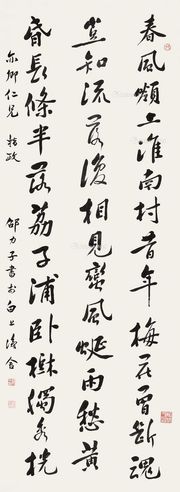 春風嶺上淮南村昔年梅花曾斷魂
豈知流落復相見蠻風蜑雨愁黃
昏長條半落荔子浦臥樹獨秀桄
亦卿仁兄 指政
邵力子書於